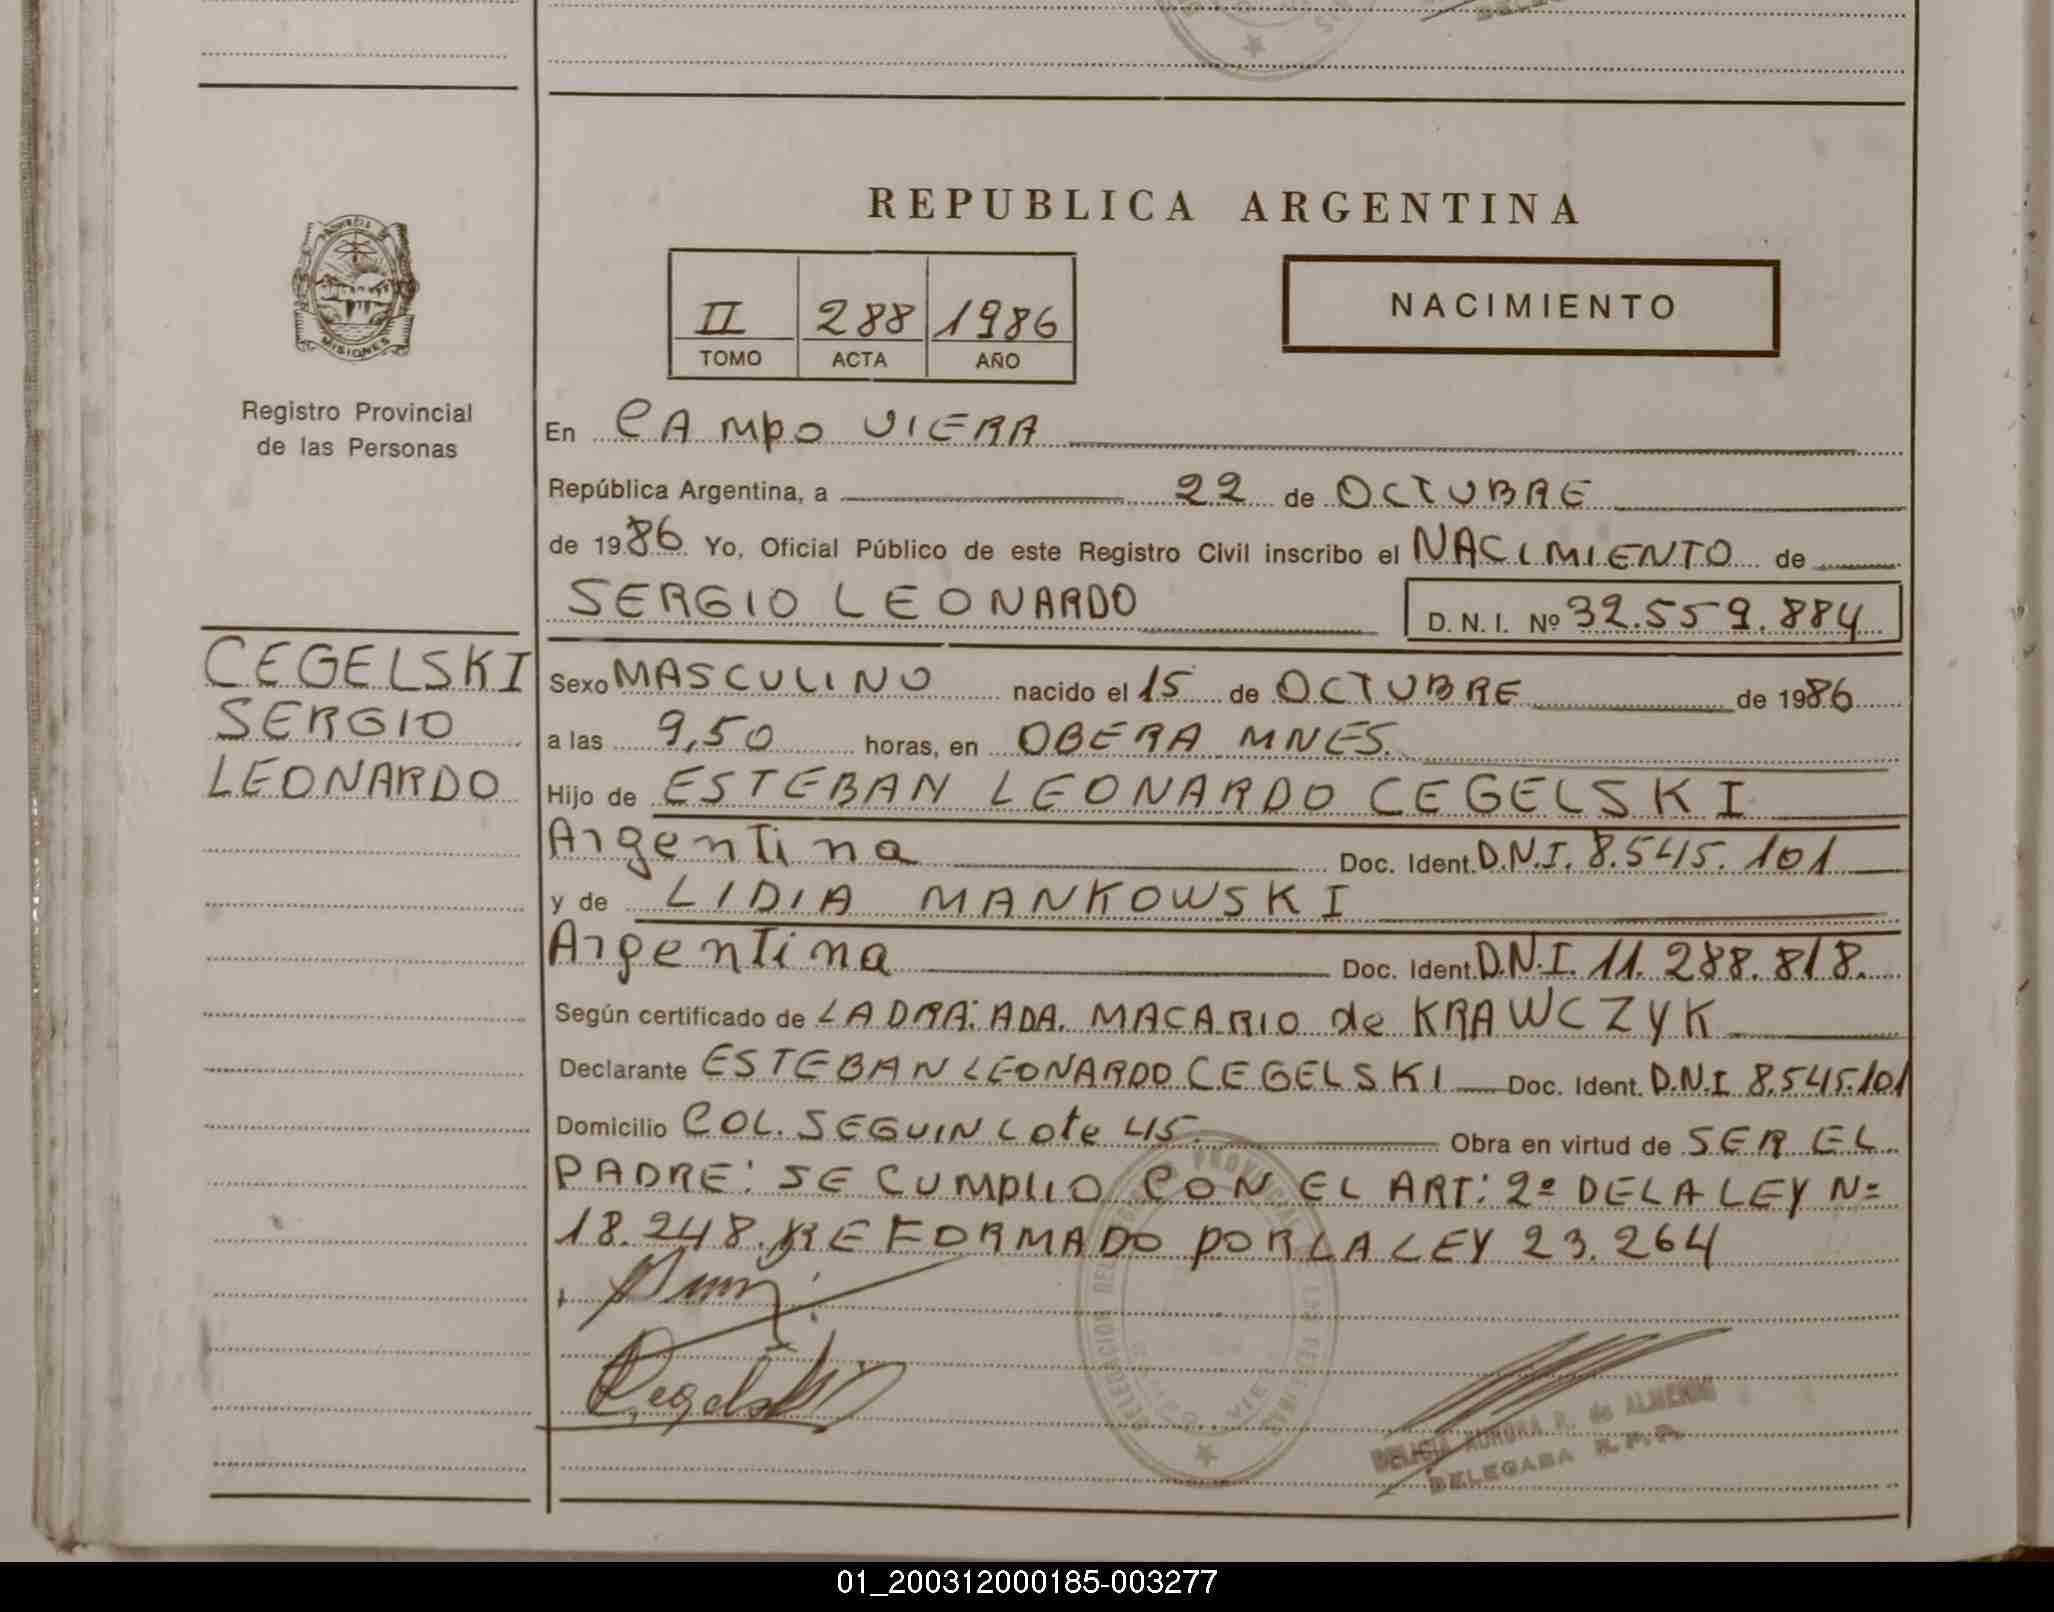 REPUBLICA ARGENTINA
II 288 1986
TOMO ACTA AÑO
NACIMIENTO
MISIONES
Registro Provincial
de las Personas
CEGELSKI
SERGIO
LEONARDO
En CAMPO VIERA
República Argentina, a 22 de OCTUBRE
de 1986 Yo, Oficial Público de este Registro Civil inscribo el NACIMIENTO de
SERGIO LEONARDO D. N. I. Nº 32.559.884
Sexo MASCULINO nacido el 15 de OCTUBRE de 1986
a las 9,50 horas, en OBERA MNES.
Hijo de ESTEBAN LEONARDO CEGELSKI
Argentina Doc. Ident. D.N.I. 8.545.101
y de LIDIA MANKOWSKI
Argentina Doc. Ident. D.N.I. 11.288.818.
Según certificado de LA DRA: ADA. MACARIO de KRAWCZYK
Declarante ESTEBAN LEONARDO CEGELSKI Doc. Ident. D.N.I 8.545.101
Domicilio COL. SEGUIN Lote 45. Obra en virtud de SER EL
PADRE: SE CUMPLIO CON EL ART: 2º DE LA LEY Nº
18.248. REFORMADO POR LA LEY 23.264
Cegelski
AURORA R. de ALMEIDA
DELEGADA R. P. P.
01_200312000185-003277